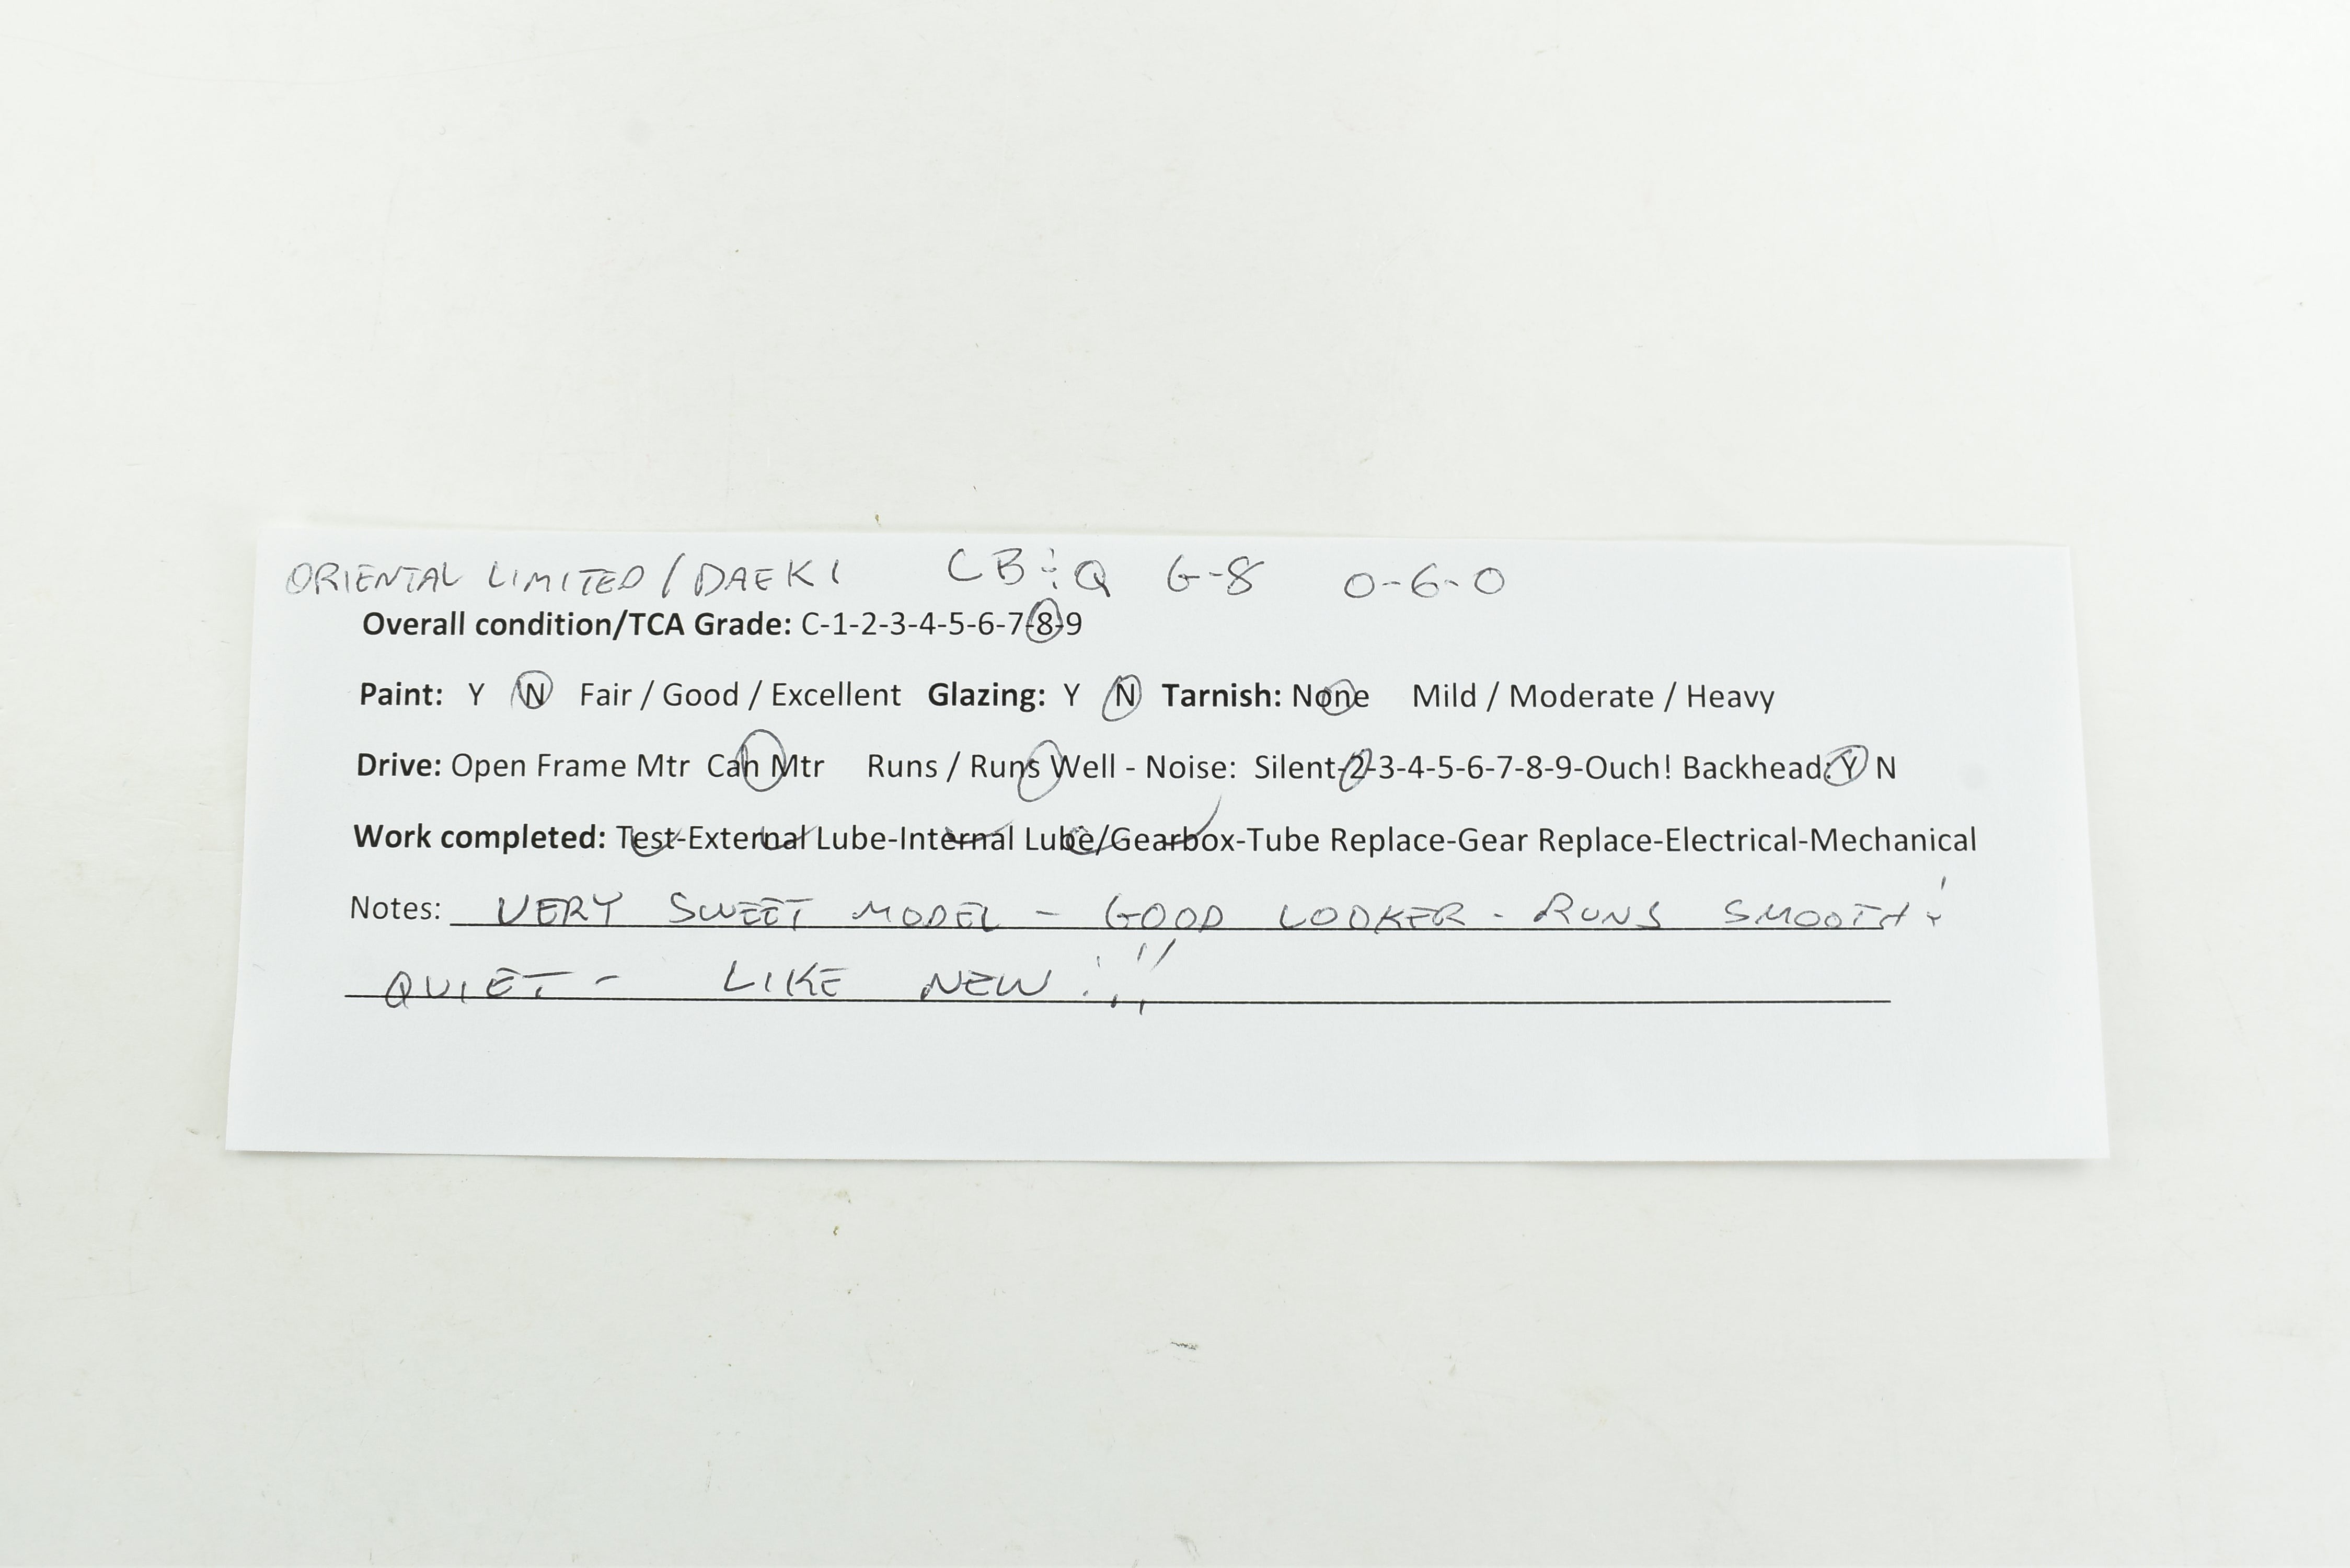 ORIENTAL LIMITED / DAEKI CB&Q G-8 0-6-0
Overall condition/TCA Grade: C-1-2-3-4-5-6-7-8-9
Paint: Y N Fair / Good / Excellent Glazing: Y N Tarnish: None Mild / Moderate / Heavy
Drive: Open Frame Mtr Can Mtr Runs / Runs Well - Noise: Silent-2-3-4-5-6-7-8-9-Ouch! Backhead: Y N
Work completed: Test-External Lube-Internal Lube/Gearbox-Tube Replace-Gear Replace-Electrical-Mechanical
Notes: VERY SWEET MODEL - GOOD LOOKER - RUNS SMOOTH &
QUIET - LIKE NEW!!!